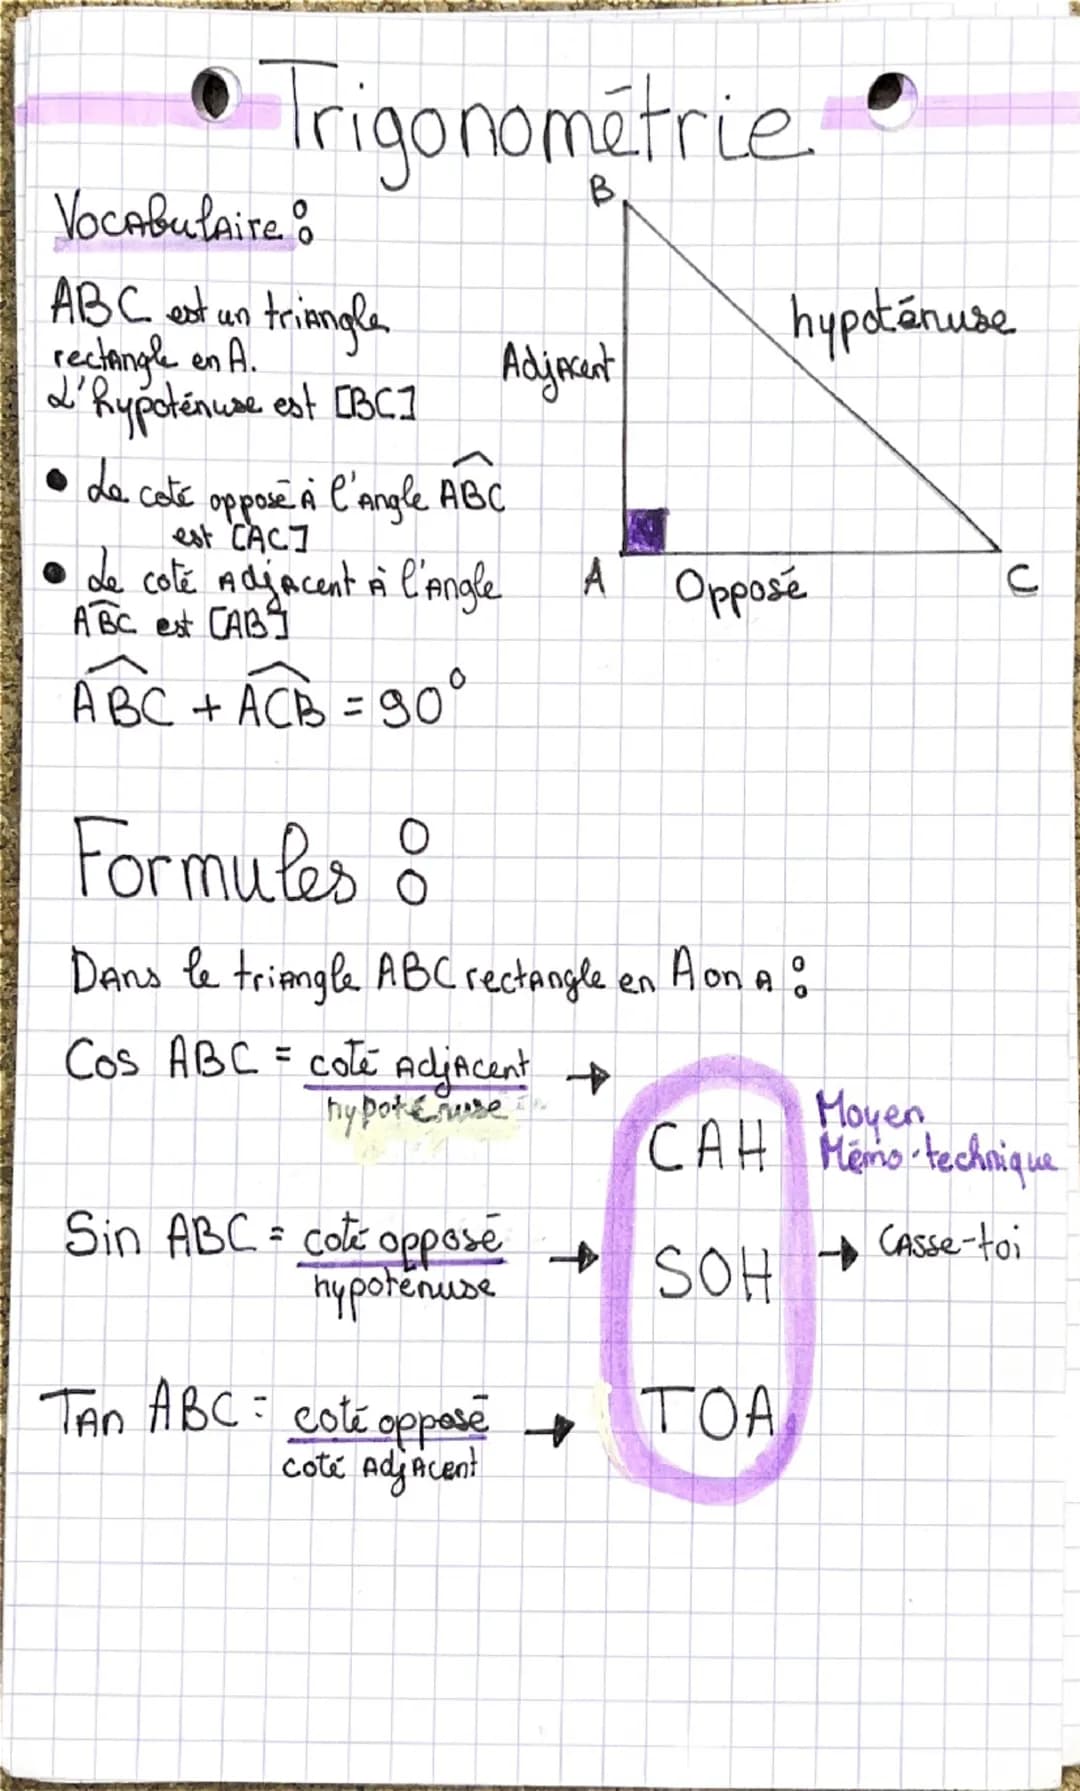 Trigonométrie
Vocabulaire :
ABC est un triangle
rectangle en A.
L'hypoténuse est [BC]
• Le coté opposé à l'angle ABC
est [AC]
• Le coté Adjacent à l'angle
ABC est [AB]
ABC + ACB = 90°
B
hypoténuse
Adjacent
A
Opposé
C
Formules :
Dans le triangle ABC rectangle en A on a :
Cos ABC = coté Adjacent
hypoténuse
→ CAH
Moyen
Mémo-technique
Sin ABC = coté opposé
hypoténuse
→ SOH → Casse-toi
Tan ABC = coté opposé
coté Adjacent
→ TOA